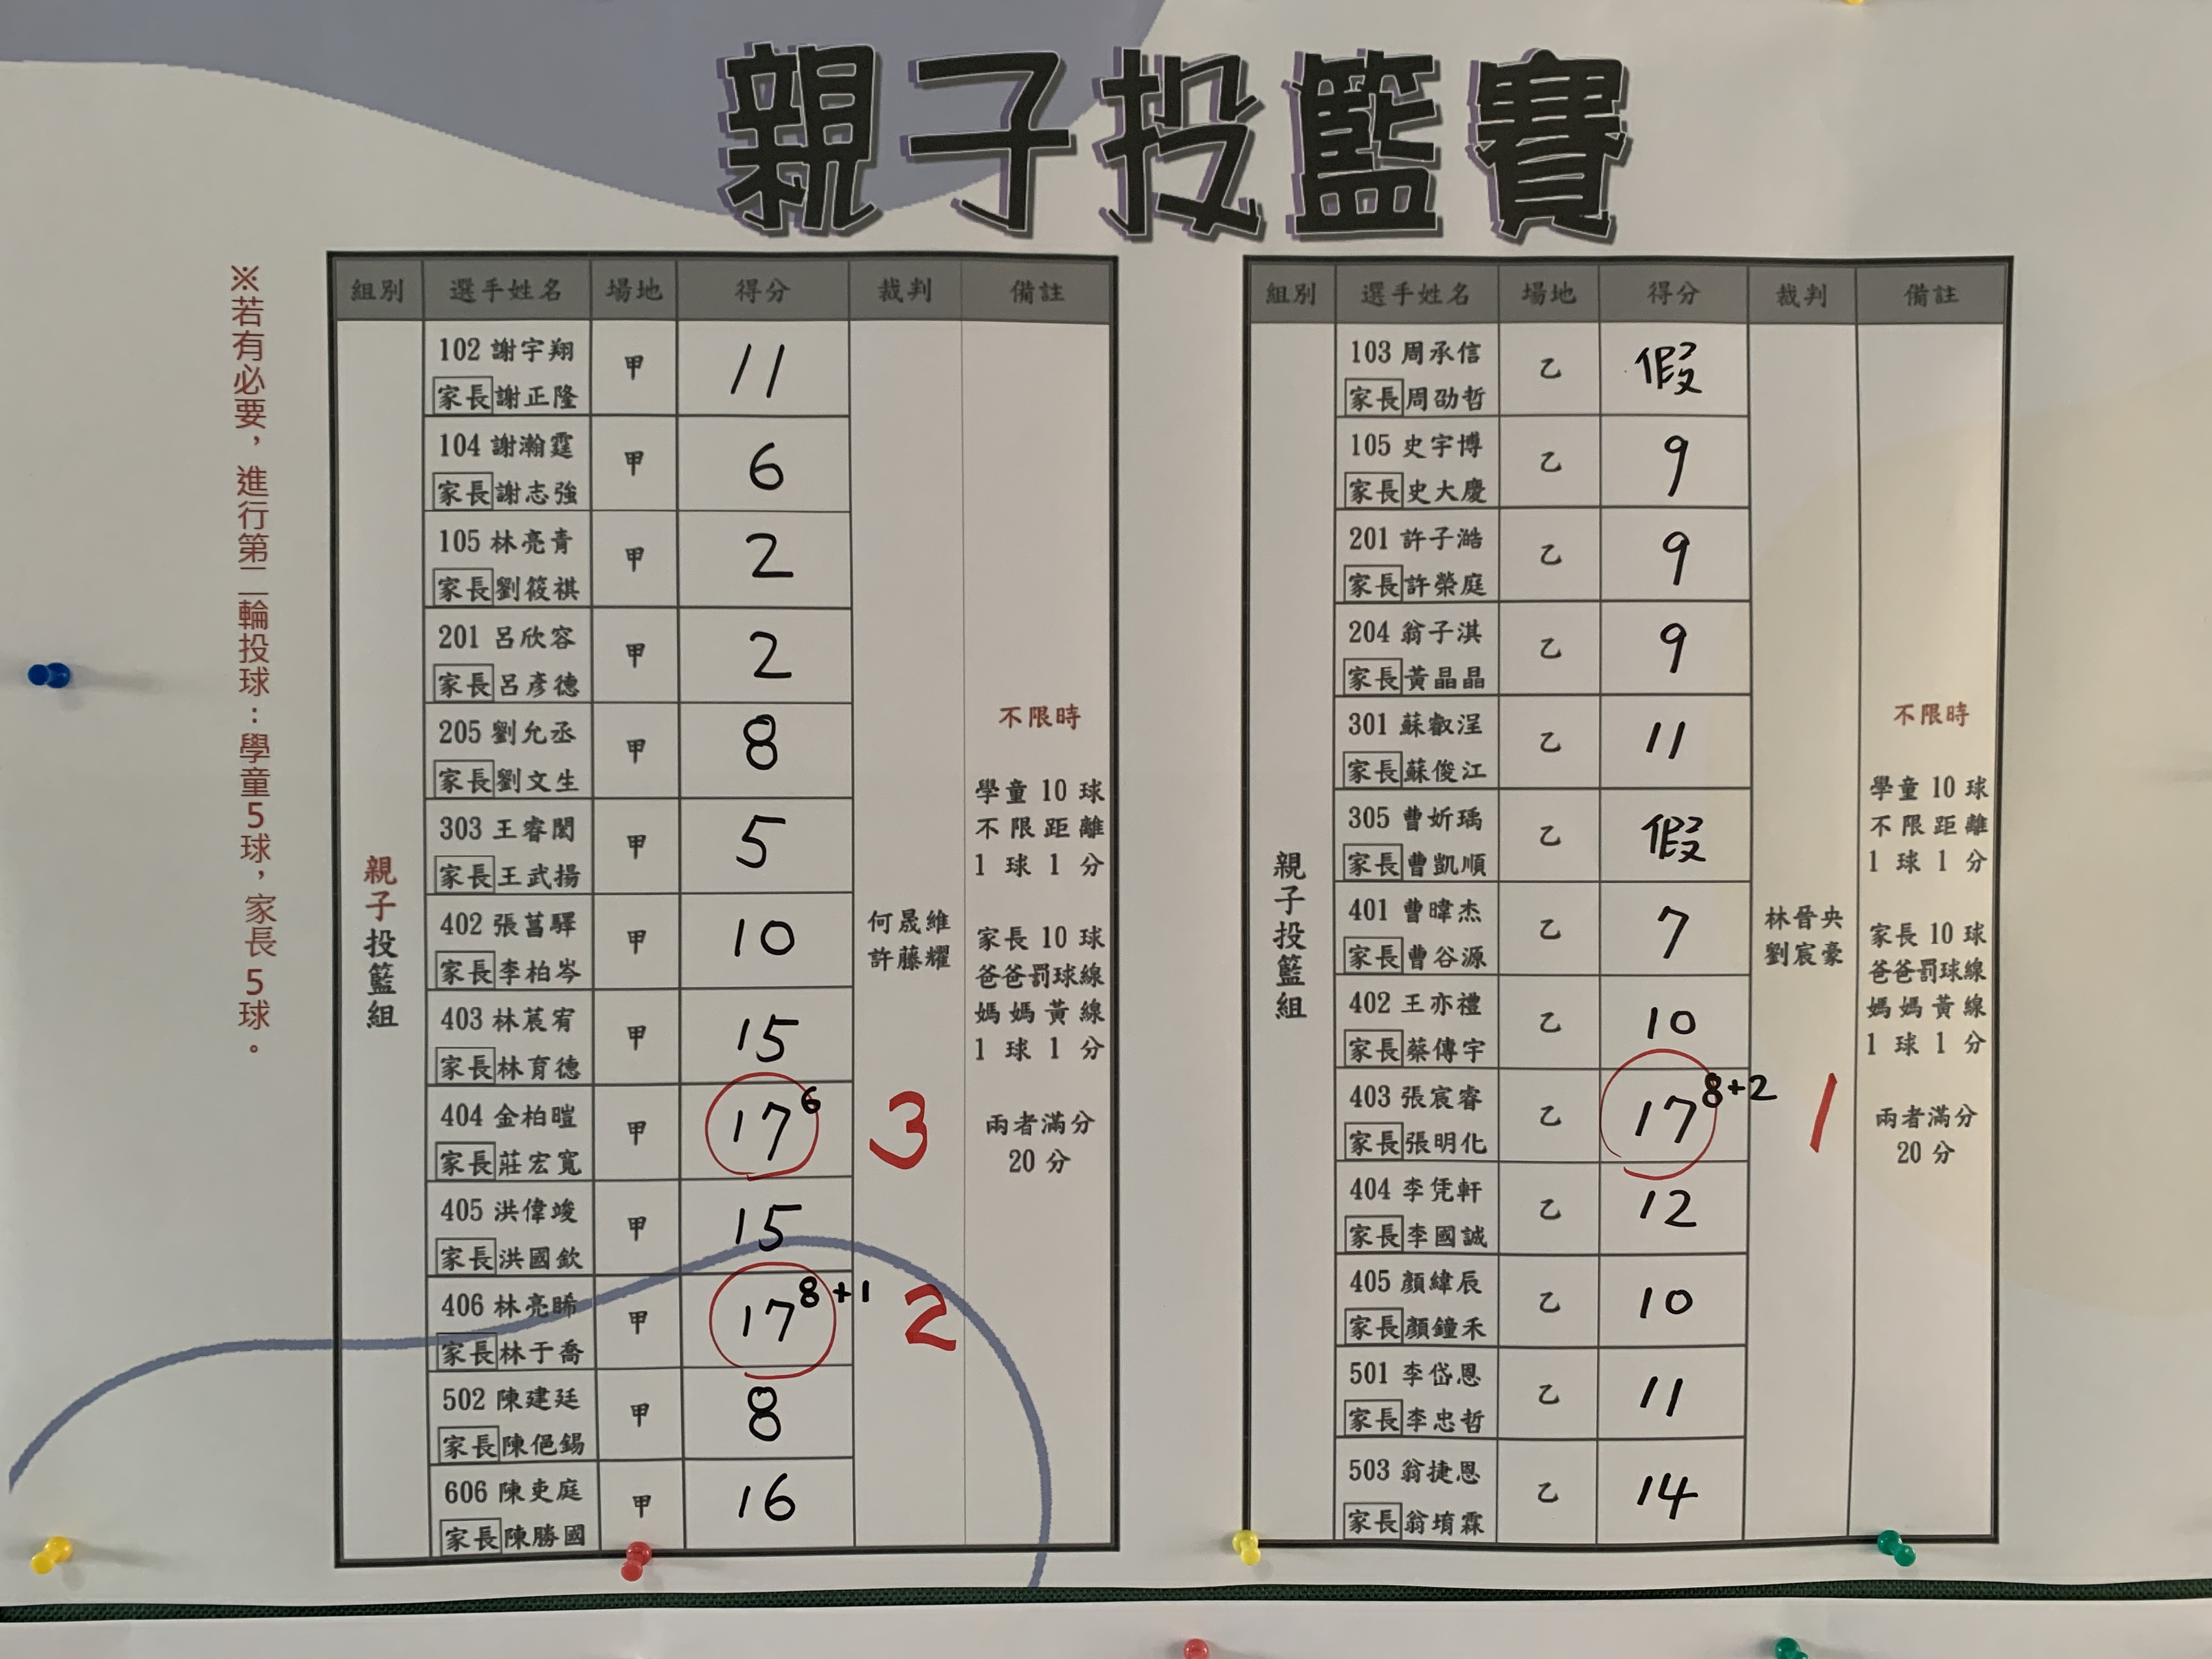 親子投籃賽
※若有必要，進行第二輪投球：學童5球，家長5球。
組別 選手姓名 場地 得分 裁判 備註
親子投籃組
102 謝宇翔 甲 11
家長 謝正隆
104 謝瀚霆 甲 6
家長 謝志強
105 林亮青 甲 2
家長 劉筱祺
201 呂欣容 甲 2
家長 呂彥德
205 劉允丞 甲 8
家長 劉文生
303 王睿閎 甲 5
家長 王武揚
402 張菖驛 甲 10
家長 李柏岑
403 林莀宥 甲 15
家長 林育德
404 金柏暟 甲 17 6 3
家長 莊宏寬
405 洪偉竣 甲 15
家長 洪國欽
406 林亮睎 甲 17 8+1 2
家長 林于喬
502 陳建廷 甲 8
家長 陳俋錫
606 陳吏庭 甲 16
家長 陳勝國
何晟維
許藤耀
不限時
學童 10 球
不限距離
1 球 1 分
家長 10 球
爸爸罰球線
媽媽黃線
1 球 1 分
兩者滿分
20 分
組別 選手姓名 場地 得分 裁判 備註
親子投籃組
103 周承信 乙 假
家長 周劭哲
105 史宇博 乙 9
家長 史大慶
201 許子澔 乙 9
家長 許榮庭
204 翁子淇 乙 9
家長 黃晶晶
301 蘇叡浧 乙 11
家長 蘇俊江
305 曹妡瑀 乙 假
家長 曹凱順
401 曹暐杰 乙 7
家長 曹谷源
402 王亦禮 乙 10
家長 蔡傳宇
403 張宸睿 乙 17 8+2 1
家長 張明化
404 李凭軒 乙 12
家長 李國誠
405 顏緯辰 乙 10
家長 顏鐘禾
501 李岱恩 乙 11
家長 李忠哲
503 翁捷恩 乙 14
家長 翁堉霖
林晉央
劉宸豪
不限時
學童 10 球
不限距離
1 球 1 分
家長 10 球
爸爸罰球線
媽媽黃線
1 球 1 分
兩者滿分
20 分